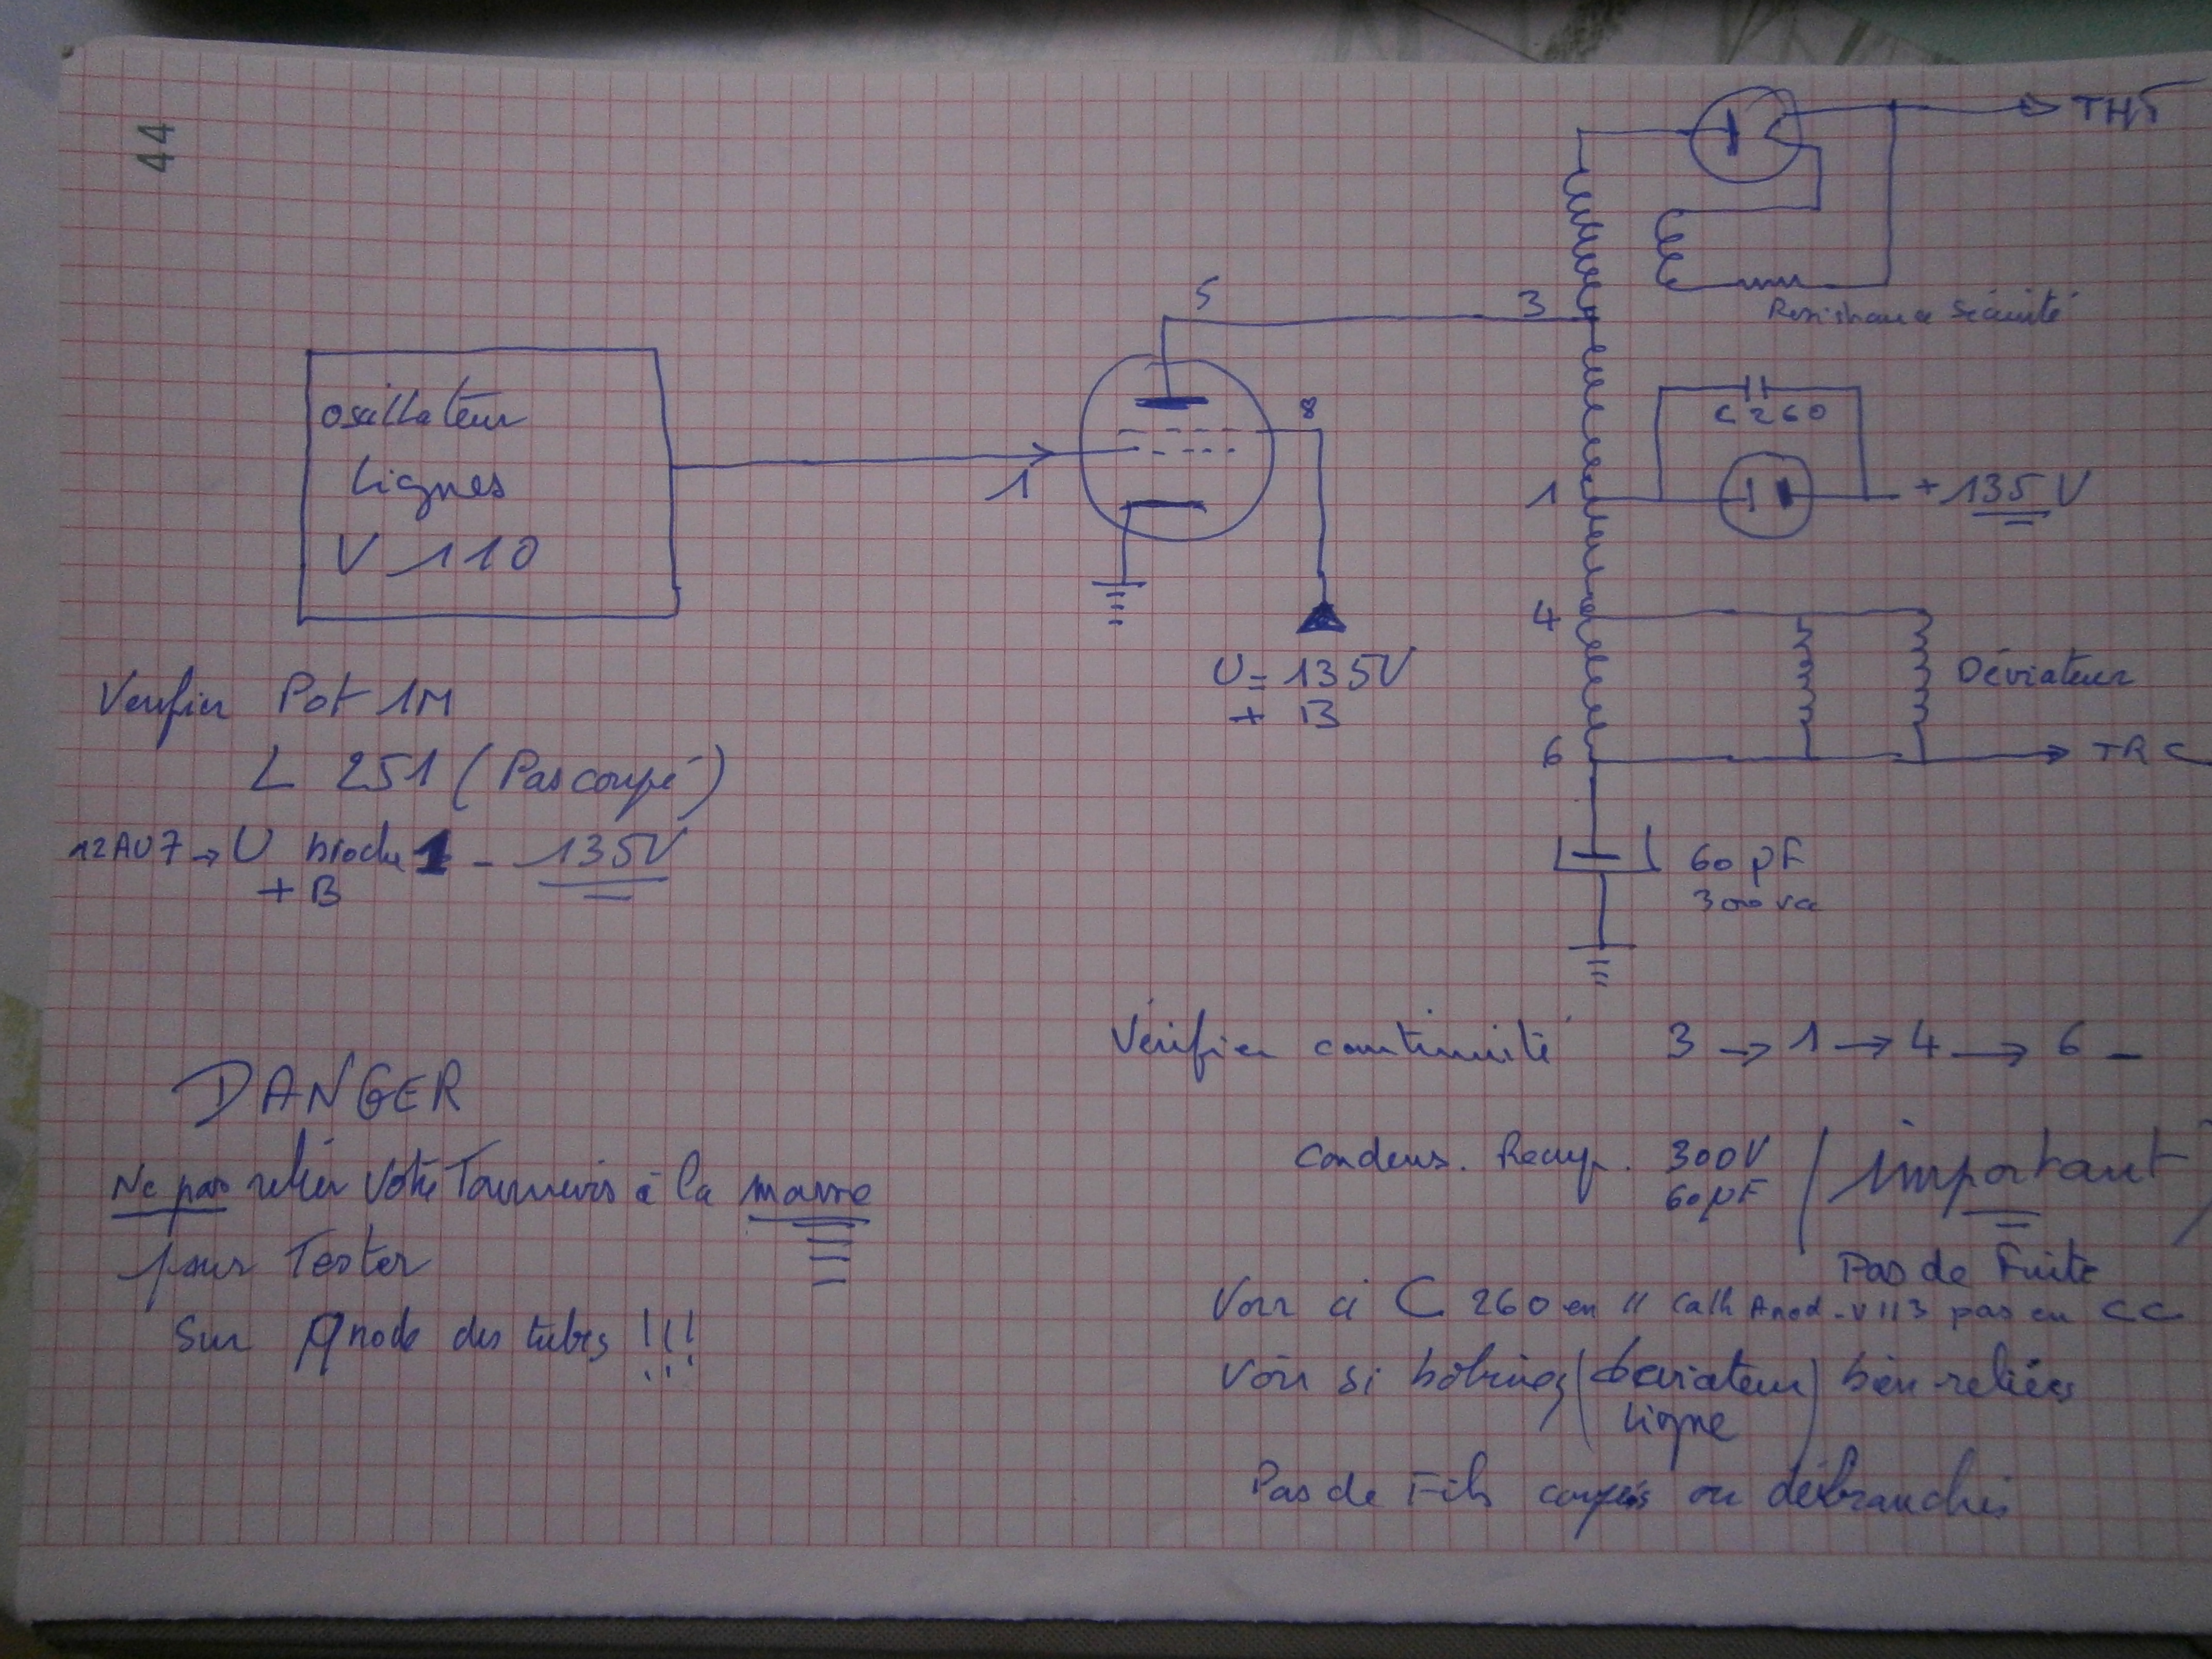 44
THT
Resistance Sécurité
5
3
oscillateur
Lignes
V 110
1
8
C 260
1
+ 135 V
4
U = 135V
+ B
Déviateur
6
TRC
60 µF
300 vcc
Verifier Pot 1M
L 251 (Pas coupé)
12AU7 → U broche 1 - 135V
+ B
Vérifier continuité 3 → 1 → 4 → 6 -
DANGER
Ne pas relier votre Tournevis à la masse
pour Tester
Sur Anode des tubes !!!
Condens. Recup. 300V (important)
60 µF
Pas de Fuite
Voir si C 260 en // Cath Anod - V113 pas en CC
Voir si bobines (deviateur Ligne) bien reliées
Pas de Fils coupés ou débranchés